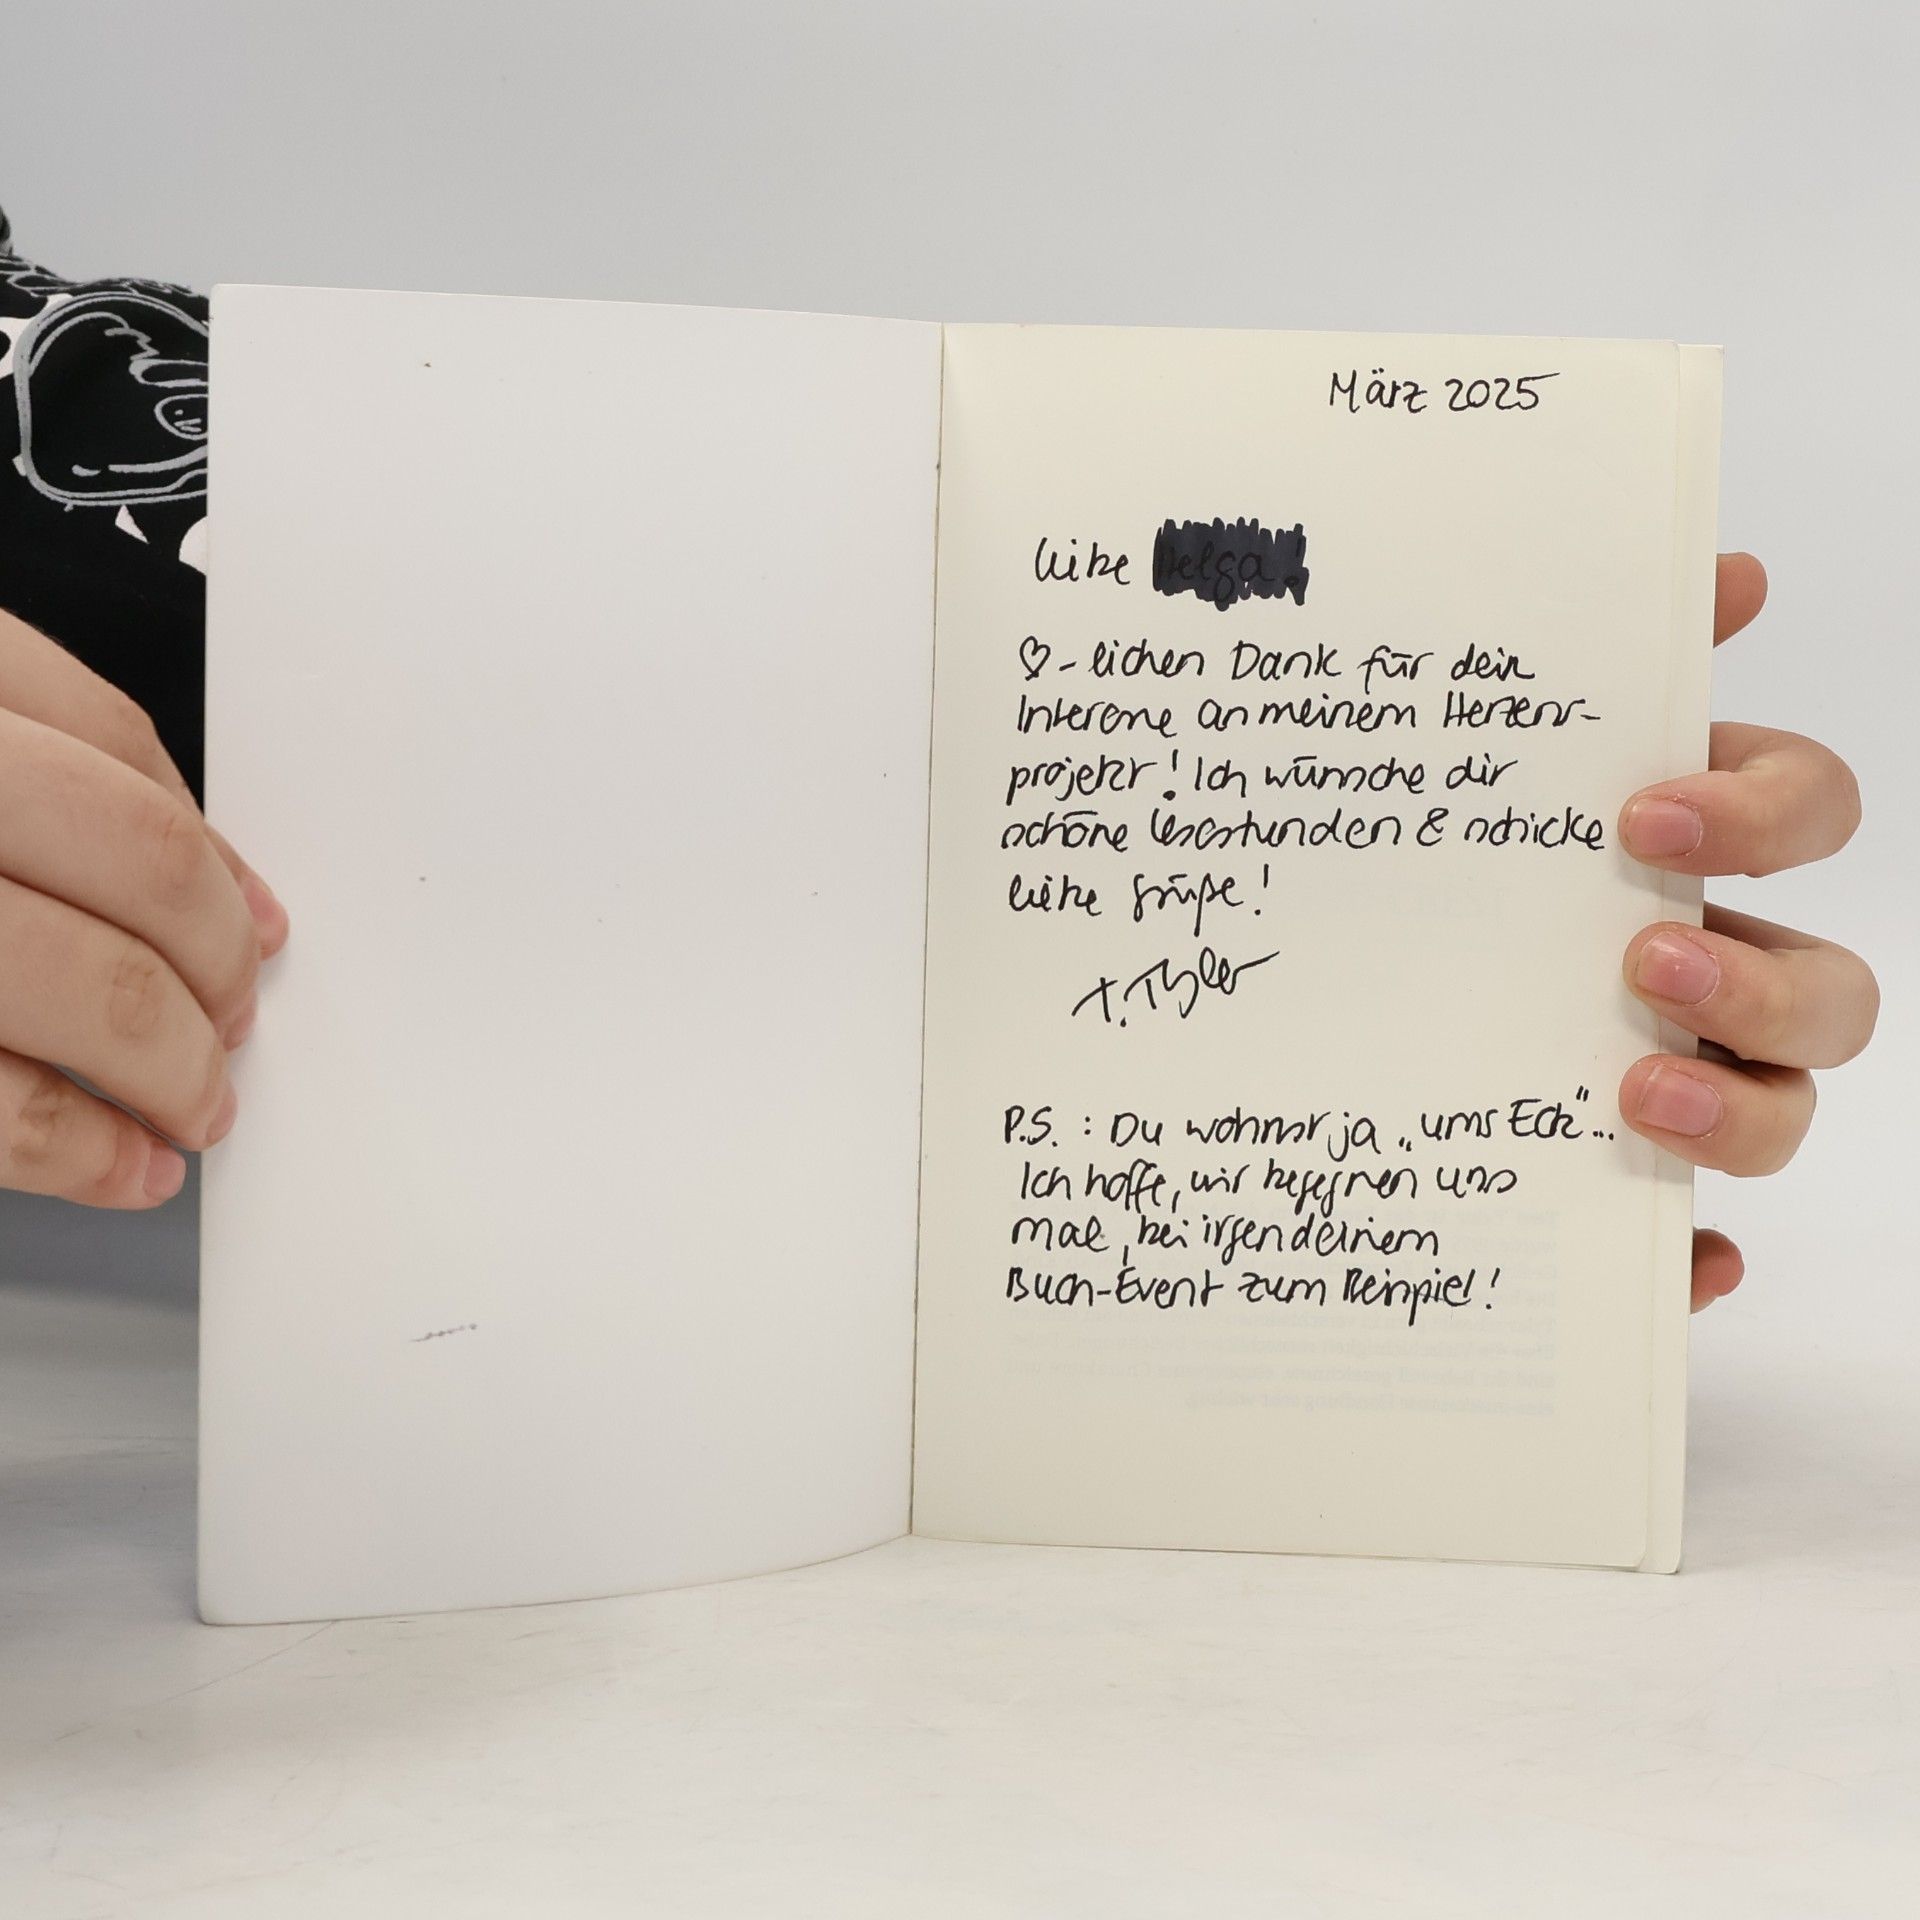 März 2025
Liebe
♡-lichen Dank für dein
Interesse an meinem Herzens-
projekt! Ich wünsche dir
schöne Lesestunden & schicke
liebe Grüße!
T. Tyler
P.S.: Du wohnst ja „ums Eck"...
Ich hoffe, wir begegnen uns
mal, bei irgendeinem
Buch-Event zum Beispiel!